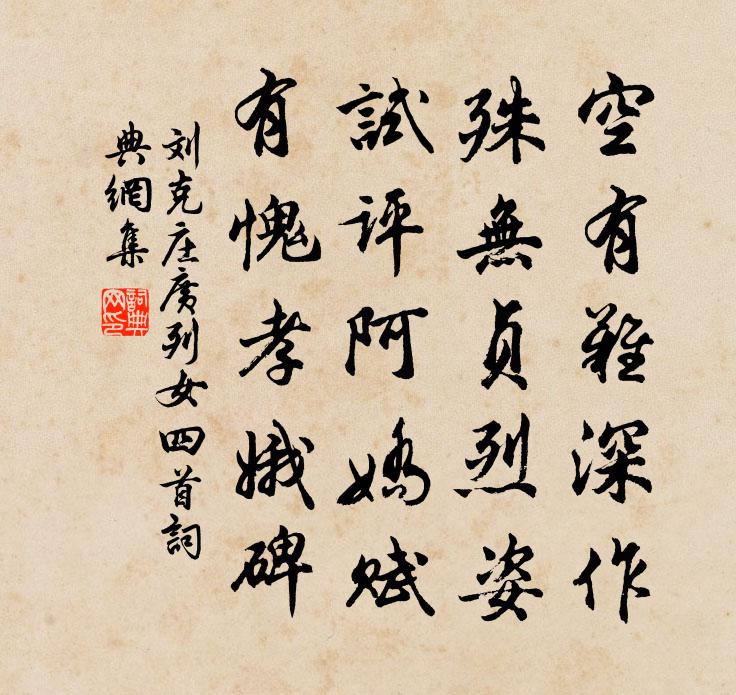 空有難深作
殊無貞烈姿
試評阿嬌赋
有愧孝娥碑
刘克庄廣列女四首詞
典網集
詞典
网印